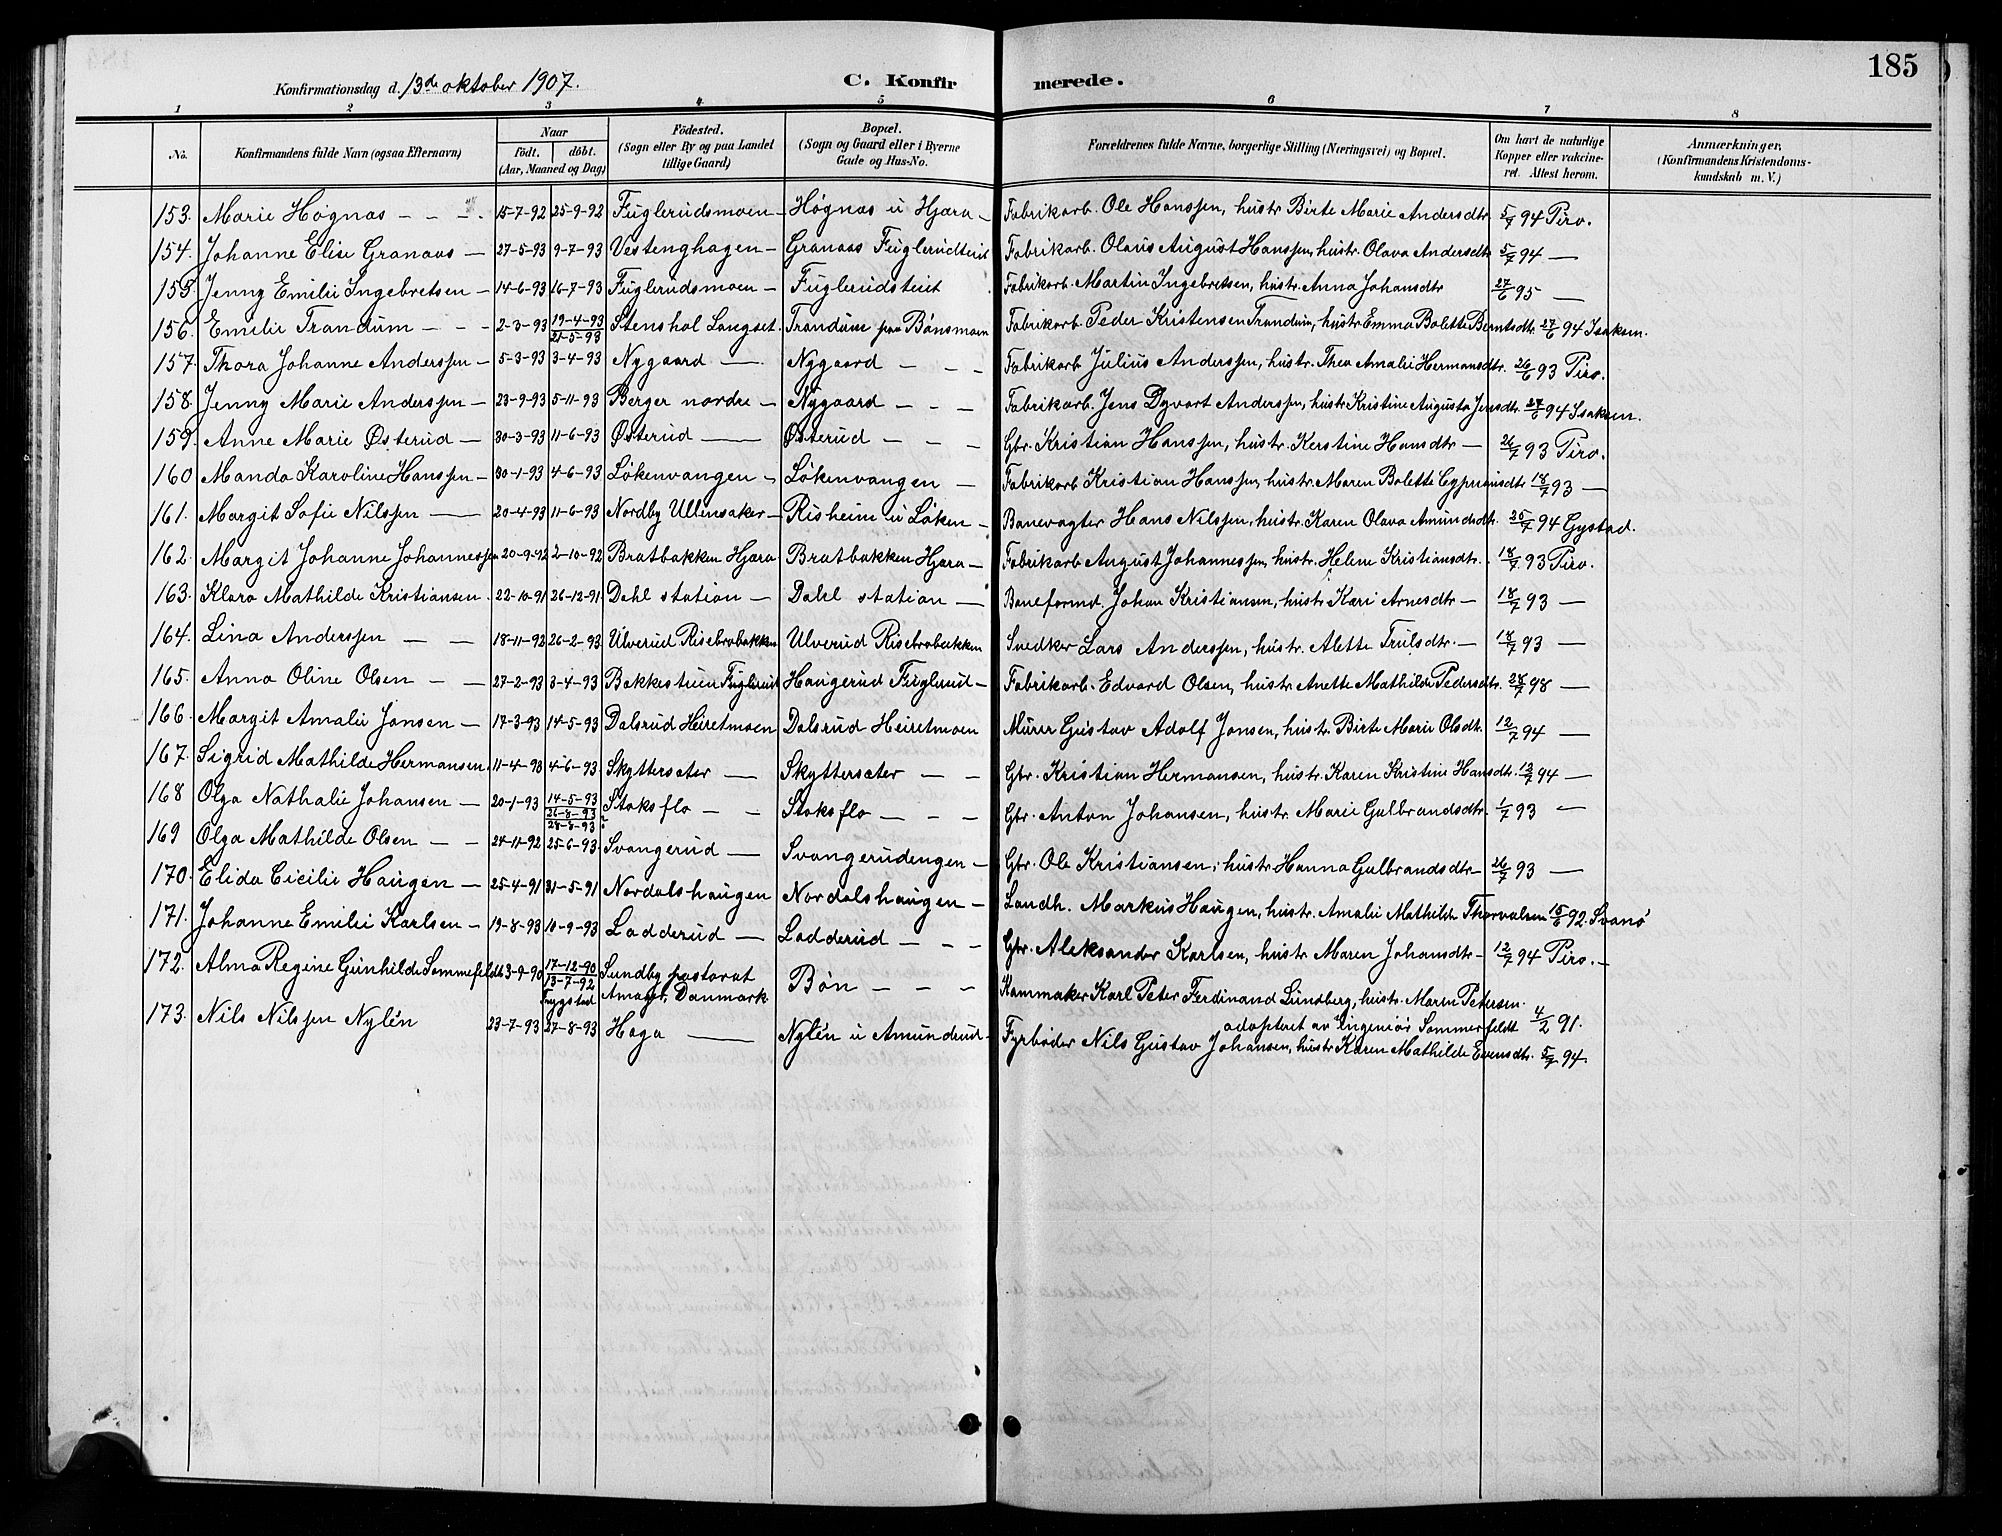 185
Konfirmationsdag d. 13de oktober 1907. C. Konfirmerede.
1 2 3 4 5 6 7 8
No. Konfirmandens fulde Navn (ogsaa Efternavn) Naar födt. döbt. (Aar, Maaned og Dag) Födested. (Sogn eller By og paa Landet tillige Gaard) Bopæl. (Sogn og Gaard eller i Byerne Gade og Hus-No. Forældrenes fulde Navne, borgerlige Stilling (Næringsvei) og Bopæl. Om havt de naturlige Kopper eller vakcineret. Attest herom. Anmærkninger, (Konfirmandens Kristendomskundskab m. V.)
153. Marie Høgnas - - - 15-7-92 25-9-92 Fuglerudsmoen - Høgnas u Hjera - Fabrikarb. Ole Hanssen, hustr. Birte Marie Andersdtr. 5/7 94 Piro.
154. Johanne Elise Granaas - 27-5-93 9-7-93 Vestenghagen - Granaas Fuglerudteit Fabrikarb. Olaus August Hanssen, hustr. Olava Andersdtr. 5/7 94 -
155. Jenny Emilie Ingebretsen - 14-6-93 16-7-93 Fuglerudsmoen - Fuglerudsteit Fabrikarb. Martin Ingebretsen, hustr. Anna Johansdtr 27/6 95 -
156. Emilie Trandum - - - 2-3-93 19-4-93 21-5-93 Stenshol Langset. Trandum paa Bønsmoen Fabrikarb. Peder Kristensen Trandum, hustr. Emma Bolette Berntsdtr. 27/6 94 Isaksen.
157. Thora Johanne Anderssen - 5-3-93 3-4-93 Nygaard - Nygaard - - - Fabrikarb. Julius Anderssen, hustr. Thea Amalie Hermansdtr. 26/6 93 Piro.
158. Jenny Marie Anderssen - 23-9-93 5-11-93 Berger nordre - Nygaard - - - Fabrikarb. Jens Dyvart Anderssen, hustr. Kristine Augusta Jensdtr. 27/6 94 Isaksen.
159. Anne Marie Østerud - 30-3-93 11-6-93 Østerud - Østerud - - - Gbr. Kristian Hanssen, hustr. Kerstine Hansdtr - 26/7 93 Piro.
160 Manda Karoline Hanssen - 30-1-93 4-6-93 Løkenvangen - Løkenvangen - Fabrikarb Kristian Hanssen, hustr. Maren Bolette Cypriansdtr 18/7 93 -
161. Margit Sofie Nilssen - 20-4-93 11-6-93 Nordby Ullensaker - Risheim u Løken - Banevogter Hans Nilssen, hustr. Karen Olava Amundsdtr. 25/7 94 Gystad.
162. Margit Johanne Johannessen 20-9-92 2-10-92 Bratbakken Hjera Bratbakken Hjera - Fabrikarb August Johannessen, hustr. Helene Kristiansdtr. 18/7 93 Piro.
163. Klara Mathilde Kristiansen. 22-10-91 26-12-91 Dahl station - Dahl station - Baneformd. Johan Kristiansen, hustr. Kari Arnesdtr - 18/7 93 -
164. Lina Anderssen - - 18-11-92 26-2-93 Ulverud Risebrobakken Ulverud Risebrobakken Snedker Lars Anderssen, hustr. Alette Trulsdtr. - 18/7 93 -
165. Anna Oline Olsen - - 27-2-93 3-4-93 Bakkestuen Fuglerud Haugerud Fuglerud - Fabrikarb. Edvard Olsen, hustr Anette Mathilde Pedersdtr. 28/7 98 -
166. Margit Amalie Jansen - 17-3-93 14-5-93 Dalsrud Heiretmoen Dalsrud Heiretmoen Murer Gustav Adolf Jansen, hustr. Birte Marie Olsdtr. 12/7 94 -
167. Sigrid Mathilde Hermansen. 11-4-93 4-6-93. Skyttersæter - Skyttersæter - - Gbr. Kristian Hermansen, hustr. Karen Kristine Hansdtr. 12/7 94 -
168 Olga Nathalie Johansen - 20-1-93 14-5-93 26-8-93 Stoksflo - - Stoksflo - - - Gbr. Anton Johansen, hustr. Marie Gulbrandsdtr. 1/7 93 -
169 Olga Mathilde Olsen - - 24-11-92 28-8-93 25-6-93. Svangerud - Svangerudengen - Gbr. Ole Kristiansen, hustr. Hanna Gulbrandsdtr - 26/7 93 -
170. Elida Cicilie Haugen - 25-4-91 31-5-91 Nordalshaugen Nordalshaugen - Landh. Markus Haugen, hustr. Amalie Mathilde Thorvalsen 15/6 92. Svanø
171. Johanne Emilie Karlsen - 19-8-93 10-9-93 Ladderud - Ladderud - - - Gbr. Aleksander Karlsen, hustr Maren Johansdtr - 12/7 94 Piro. -
172. Alma Regine Gunhilde Sommerfeldt 3-9-90 17-12-90 13-7-92 Trygstad Sundby pastorat Amager, Danmark Bøn - - - Kammaker Karl Peter Ferdinand Lundberg, hustr. Maren Petersen. adopteret av Ingeniør Sommerfeldt 4/2 91.
173. Nils Nilssen Nylén 23-7-93 27-8-93 Haga - Nylén u Amundrud - Fyrbøder Nils Gustav Johansen, hustr Karen Mathilde Evensdtr. 5/7 94.